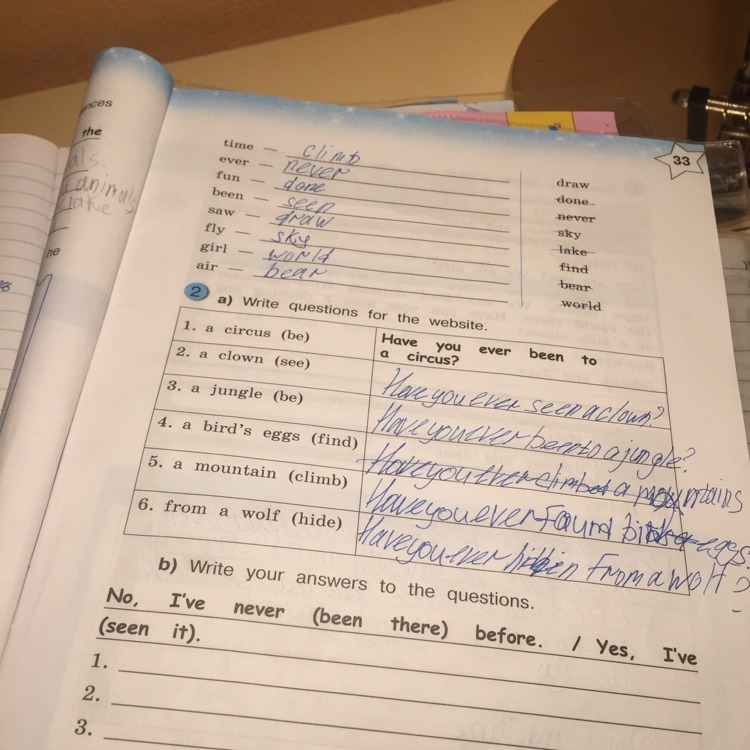 nces
the
als.
animals
Lake
he
33
time — climb
ever — never
fun — done
been — seen
saw — draw
fly — sky
girl — world
air — bear
draw
done
never
sky
lake
find
bear
world
2 a) Write questions for the website.
1. a circus (be)
Have you ever been to
a circus?
2. a clown (see)
Have you ever seen a clown?
3. a jungle (be)
Have you ever been to a jungle?
4. a bird's eggs (find)
Have you climbed a mountains
5. a mountain (climb)
Have you ever found eggs?
6. from a wolf (hide)
Have you ever hidden from a wolf?
b) Write your answers to the questions.
No, I've never (been there) before. / Yes, I've
(seen it).
1.
2.
3.